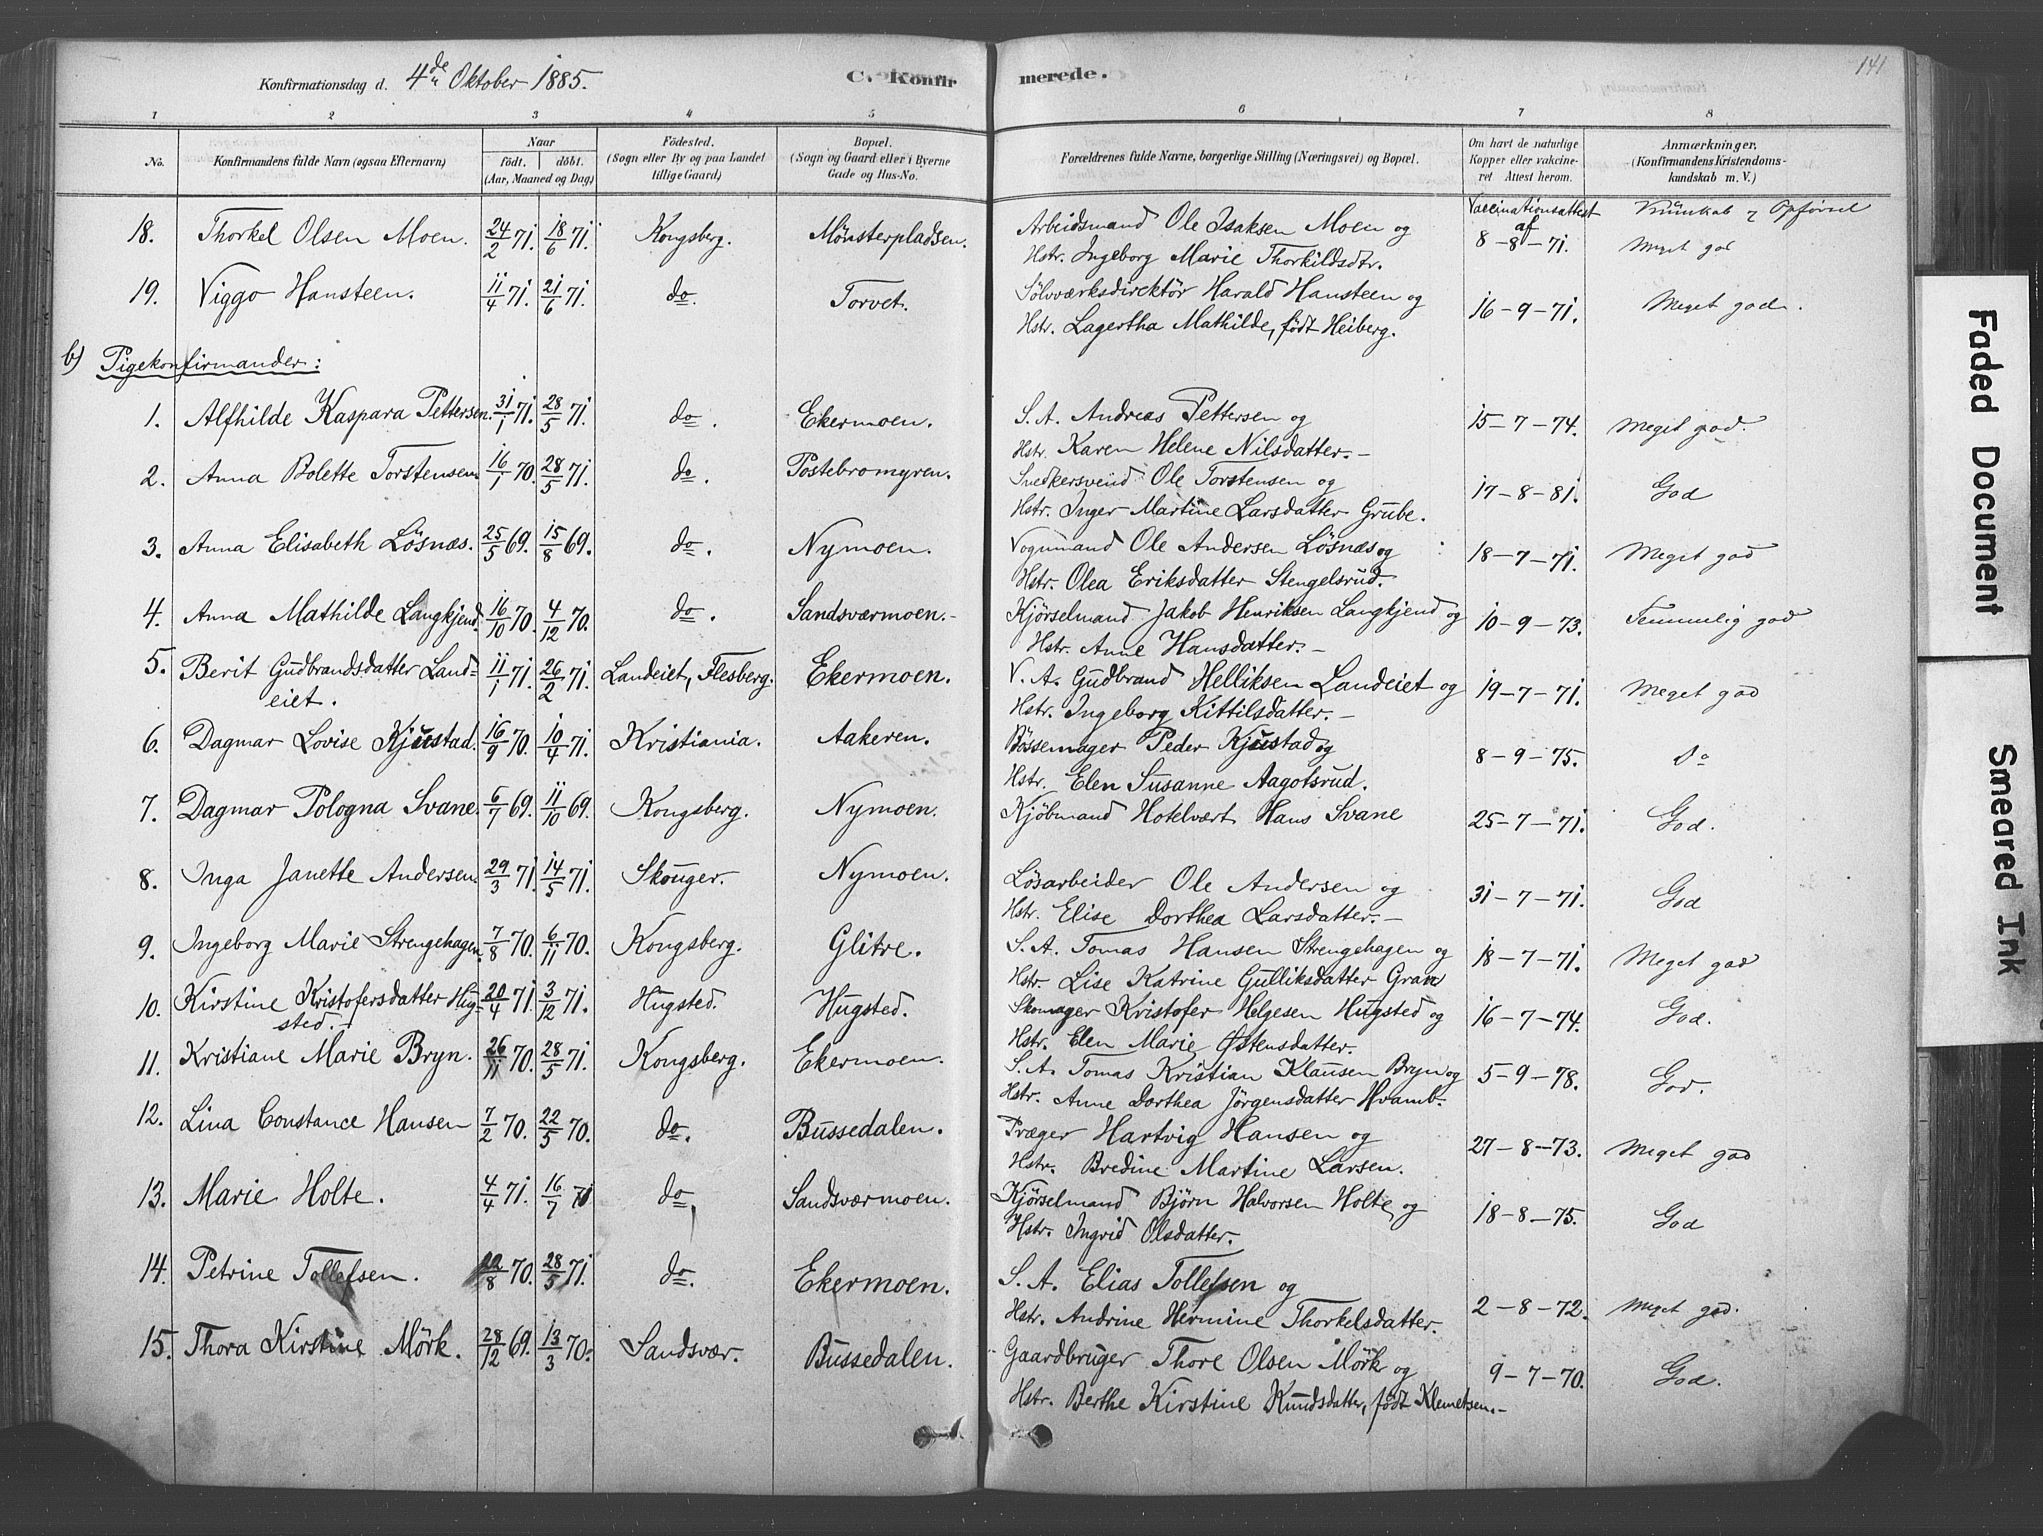 Konfirmationsdag d. 4de Oktober 1885.
C. Konfirmerede.
141
1 2 3 4 5 6 7 8
No.
Konfirmandens fulde Navn (ogsaa Efternavn)
Naar
født. døbt.
(Aar, Maaned og Dag)
Fødested.
(Sogn eller By og paa Landet
tillige Gaard)
Bopæl.
(Sogn og Gaard eller i Byerne
Gade og Hus-No.
Forældrenes fulde Navne, borgerlige Stilling (Næringsvei) og Bopæl.
Om havt de naturlige
Kopper eller vakcine-
ret Attest herom.
Anmærkninger.
(Konfirmandens Kristendoms-
kundskab m. V.)
Vaccinationsattest af
Kundskab og Opførsel
18. Thorkel Olsen Moen. 24/2 71. 18/6 71. Kongsberg. Mönsterpladsen. Arbeidsmand Ole Isaksen Moen og 8-8-71. Meget god
Hstr. Ingeborg Marie Thorkildsdtr.
19. Viggo Hansteen. 11/4 71. 21/6 71. do. Torvet. Sölvværksdirektör Harald Hansteen og 16-9-71. Meget god.
Hstr. Lagertha Mathilde, född Heiberg.
b) Pigekonfirmander:
1. Alfhilde Kaspara Pettersen. 31/1 71. 28/5 71. do. Ekermoen. S. A. Andreas Pettersen og 15-7-74. Meget god.
Hstr. Karen Helene Nilsdatter.-
2. Anna Bolette Torstensen. 16/1 70. 28/5 71. do. Postebromyren. Snedkersvend Ole Torstensen og 17-8-81. God
Hstr. Inger Martine Larsdatter Grube.
3. Anna Elisabeth Lösnæs. 25/5 69. 15/8 69. do. Nymoen. Vognmand Ole Andersen Lösnæs og 18-7-71. Meget god
Hstr. Olea Eriksdatter Stengelsrud.
4. Anna Mathilde Langkjend. 16/10 70. 4/12 70. do. Sandsværmoen.- Kjörselmand Jakob Henriksen Langkjend og 10-9-73. Temmelig god
Hstr. Anne Hansdatter.-
5. Berit Gudbrandsdatter Land= 11/1 71. 26/2 71. Landeiet, Flesberg. Ekermoen. V. A. Gudbrand Helliksen Landeiet og 19-7-71. Meget god
eiet. Hstr. Ingeborg Kittilsdatter.-
6. Dagmar Lovise Kjustad. 16/9 70. 10/4 71. Kristiania. Aakeren. Bössemager Peder Kjustad og 8-9-75. Do
Hstr. Elen Susanne Aagotsrud.
7. Dagmar Pologna Svane. 6/7 69. 11/10 69. Kongsberg. Nymoen. Kjöbmand Hotelvært Hans Svane 25-7-71. God.
8. Inga Janette Andersen. 29/3 71. 14/5 71. Skouger. Nymoen. Lösarbeider Ole Andersen og 31-7-71. God
Hstr. Elise Dorthea Larsdatter.-
9. Ingeborg Marie Strengehagen. 7/8 70. 6/11 70. Kongsberg. Glitre. S. A. Tomas Hansen Strengehagen og 18-7-71. Meget god
Hstr. Lise Katrine Gulliksdatter Gran
10. Kirstine Kristofersdatter Hug= 20/4 71. 3/12 71. Hugsted. Hugsted. Skomager Kristofer Helgesen Hugsted og 16-7-74. God.
sted.- Hstr. Elen Marie Østensdatter.
11. Kristiane Marie Bryn. 26/11 70. 28/5 71. Kongsberg. Ekermoen. S. A. Tomas Kristian Klausen Bryn og 5-9-78. God.
Hstr. Anne Dorthea Jörgensdatter Hvamb.
12. Lina Constance Hansen 7/2 70. 22/5 70. do. Bussedalen. Præger Hartvig Hansen og 27-8-73. Meget god
Hstr. Bredine Martine Larsen.
13. Marie Holte. 4/4 71. 16/7 71 do. Sandsværmoen. Kjörselmand Björn Halvorsen Holte og 18-8-75. God
Hstr. Ingrid Olsdatter.
14. Petrine Tollefsen. 22/8 70. 28/5 71. do. Ekermoen. S. A. Elias Tollefsen og 2-8-72. Meget god.
Hstr. Andrine Hermine Thorkelsdatter.
15. Thora Kirstine Mörk. 28/12 69. 13/3 70. Sandsvær. Bussedalen. Gaardbruger Thore Olsen Mörk og 9-7-70. God.
Hstr. Berthe Kirstine Knudsdatter, född Klemetsen.-
Faded Document
Smeared Ink